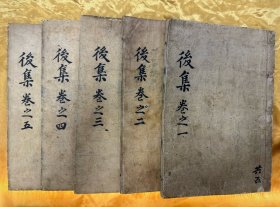 後集 卷之一
共五
後集 卷之二
後集 卷之三
後集 卷之四
後集 卷之五